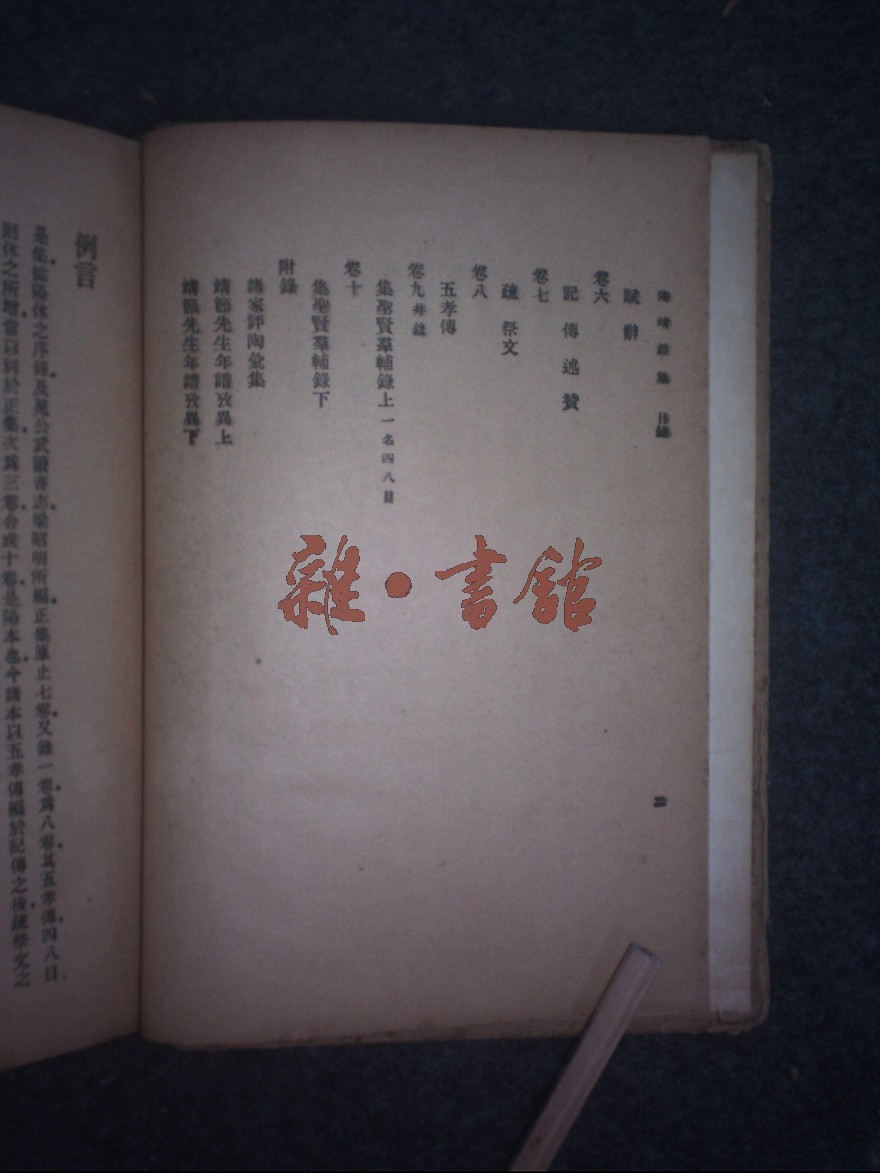 陶靖節集 目錄
二
賦辭
卷六
記 傳 述 贊
卷七
疏 祭文
卷八
五孝傳
卷九 并錄
集聖賢羣輔錄上 一名四八目
卷十
集聖賢羣輔錄下
附錄
諸家評陶彙集
靖節先生年譜攷異上
靖節先生年譜攷異下
雜·書館
例言
是集據陽休之序錄及晁公武讀書志梁昭明所編正集單止七卷又錄一卷爲八卷其五孝傳四八目
則休之所增當以列於正集次爲三卷合成十卷是陽本也今諸本以五孝傳編於記傳之後疏祭文之